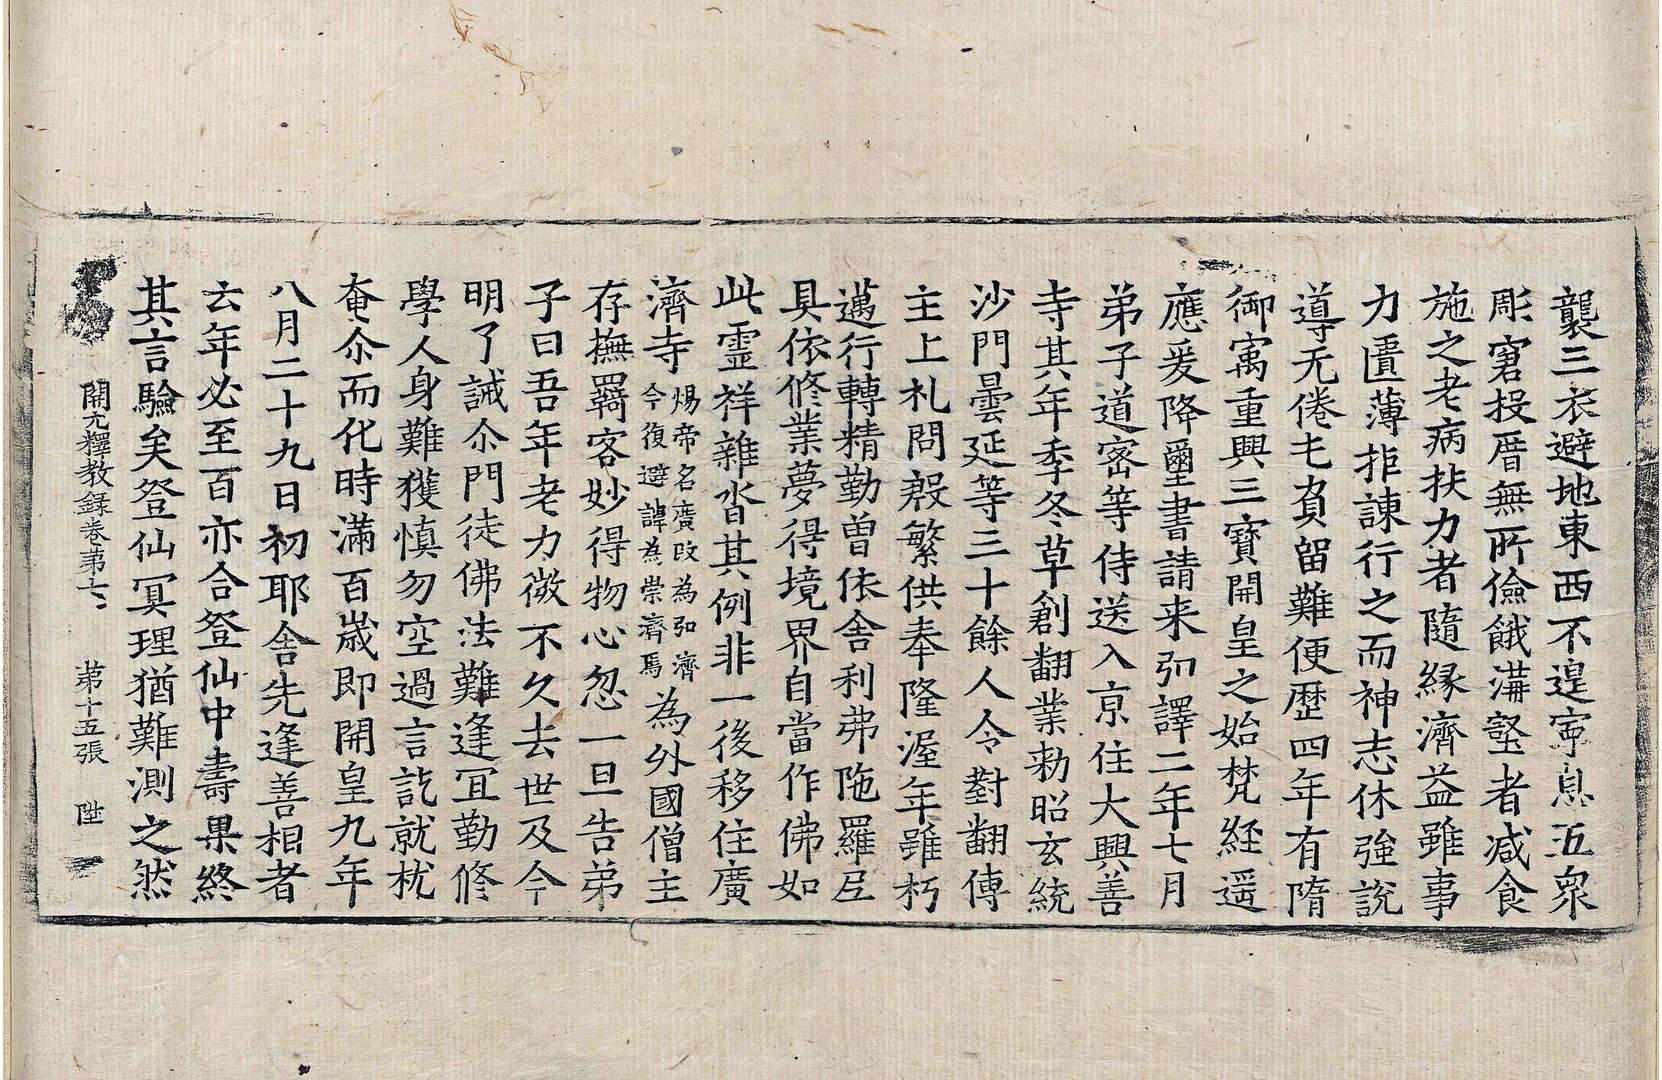 襲三衣避地東西不遑寧息五衆
彫窘投厝無所儉餓溝壑者减食
施之老病扶力者隨緣濟益雖事
力匱薄拒諫行之而神志休強說
導无倦屯負留難便歷四年有隋
御㝢重興三寶開皇之始梵經遥
應爰降璽書請来弘譯二年七月
弟子道密等侍送入京住大興善
寺其年季冬草創翻業勑昭玄統
沙門曇延等三十餘人令對翻傳
主上札問殷繁供奉隆渥年雖朽
邁行轉精勤曽依舍利弗陁羅尼
具依修業夢得境界自當作佛如
此靈祥雜沓其例非一後移住廣
濟寺煬帝名廣改為弘濟今復避諱為崇濟焉為外國僧主
存撫羇客妙得物心忽一旦告弟
子曰吾年老力微不久去世及今
明了誡尒門徒佛法難逢冝勤修
學人身難獲慎勿空過言訖就枕
奄尒而化時滿百歲即開皇九年
八月二十九日初耶舍先逢善相者
云年必至百亦合登仙中壽果終
其言驗矣登仙冥理猶難測之然
開元釋教録卷第七 第十五張 陞